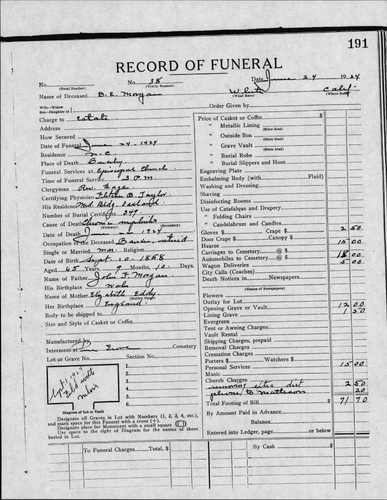 191
RECORD OF FUNERAL
No. No. 38 Date June 24 1924
(Total Number) (Yearly Number)
Name of Deceased B.E. Morgan White Calif.
(What Race) (Where Born)
Wife—Widow
Son—Daughter of
Order Given by
Charge to estate
Address
How Secured
Date of Funeral June 24 - 1924
Residence N.C.
Place of Death
Funeral Services at Episcopal Church
Time of Funeral Service 3 P.M.
Clergyman Rev.
Certifying Physician B. Taylor
His Residence Med Bldg Oakland
Number of Burial Certificate 249
Cause of Death
(Primary)
Date of Death June 1924
Occupation of the Deceased retired
Single or Married Mar. Religion
Date of Birth Sept. 10, 1858
Aged 65 Years 9 Months, 10 Days.
Name of Father John F. Morgan
His Birthplace Wales
Name of Mother Elizabeth Eddy
Her Birthplace England
Body to be shipped to
Size and Style of Casket or Coffin
Manufactured by
Interment at Grove Cemetery
Lot or Grave No. Section No.
1.
2.
3.
4.
5.
Diagram of Lot or Vault
Designate all Graves in Lot with Numbers (1, 2, 3, 4, etc.),
and mark space for this Funeral with a cross (+).
Designate place for Monument with a small square (□).
Use space to the right of Diagram for the names of those
buried in Lot.
Price of Casket or Coffin
" Metallic Lining
(State Kind)
" Outside Box
(State Kind)
" Grave Vault
(State Kind)
" Burial Robe
" Burial Slippers and Hose
Engraving Plate
Embalming Body (with Fluid)
Washing and Dressing
Shaving
Disinfecting Rooms
Use of Catafalque and Drapery
" Folding Chairs
" Candelabrum and Candles
Gloves $ 2 50
Door Crape
Hearse 15 00
Carriages to Cemetery
Automobiles to Cemetery 18 00
Wagon Deliveries 5 00
City Calls (Coaches)
Death Notices in Newspapers
(Names of Newspapers)
Flowers
Outlay for Lot
Opening Grave or Vault 12 00
Lining Grave 1 50
Evergreen
Tent or Awning Charges
Vault Rental
Shipping Charges, prepaid
Removal Charges
Cremation Charges
Porters $ Watchers $
Personal Services 15 00
Music
Church Charges
removing dirt 2 50
phone to Mattison 20
Total Footing of Bill $ 71 70
By Amount Paid in Advance
Balance
Entered into Ledger, page or below.
To Funeral Charges Total $ By Cash $